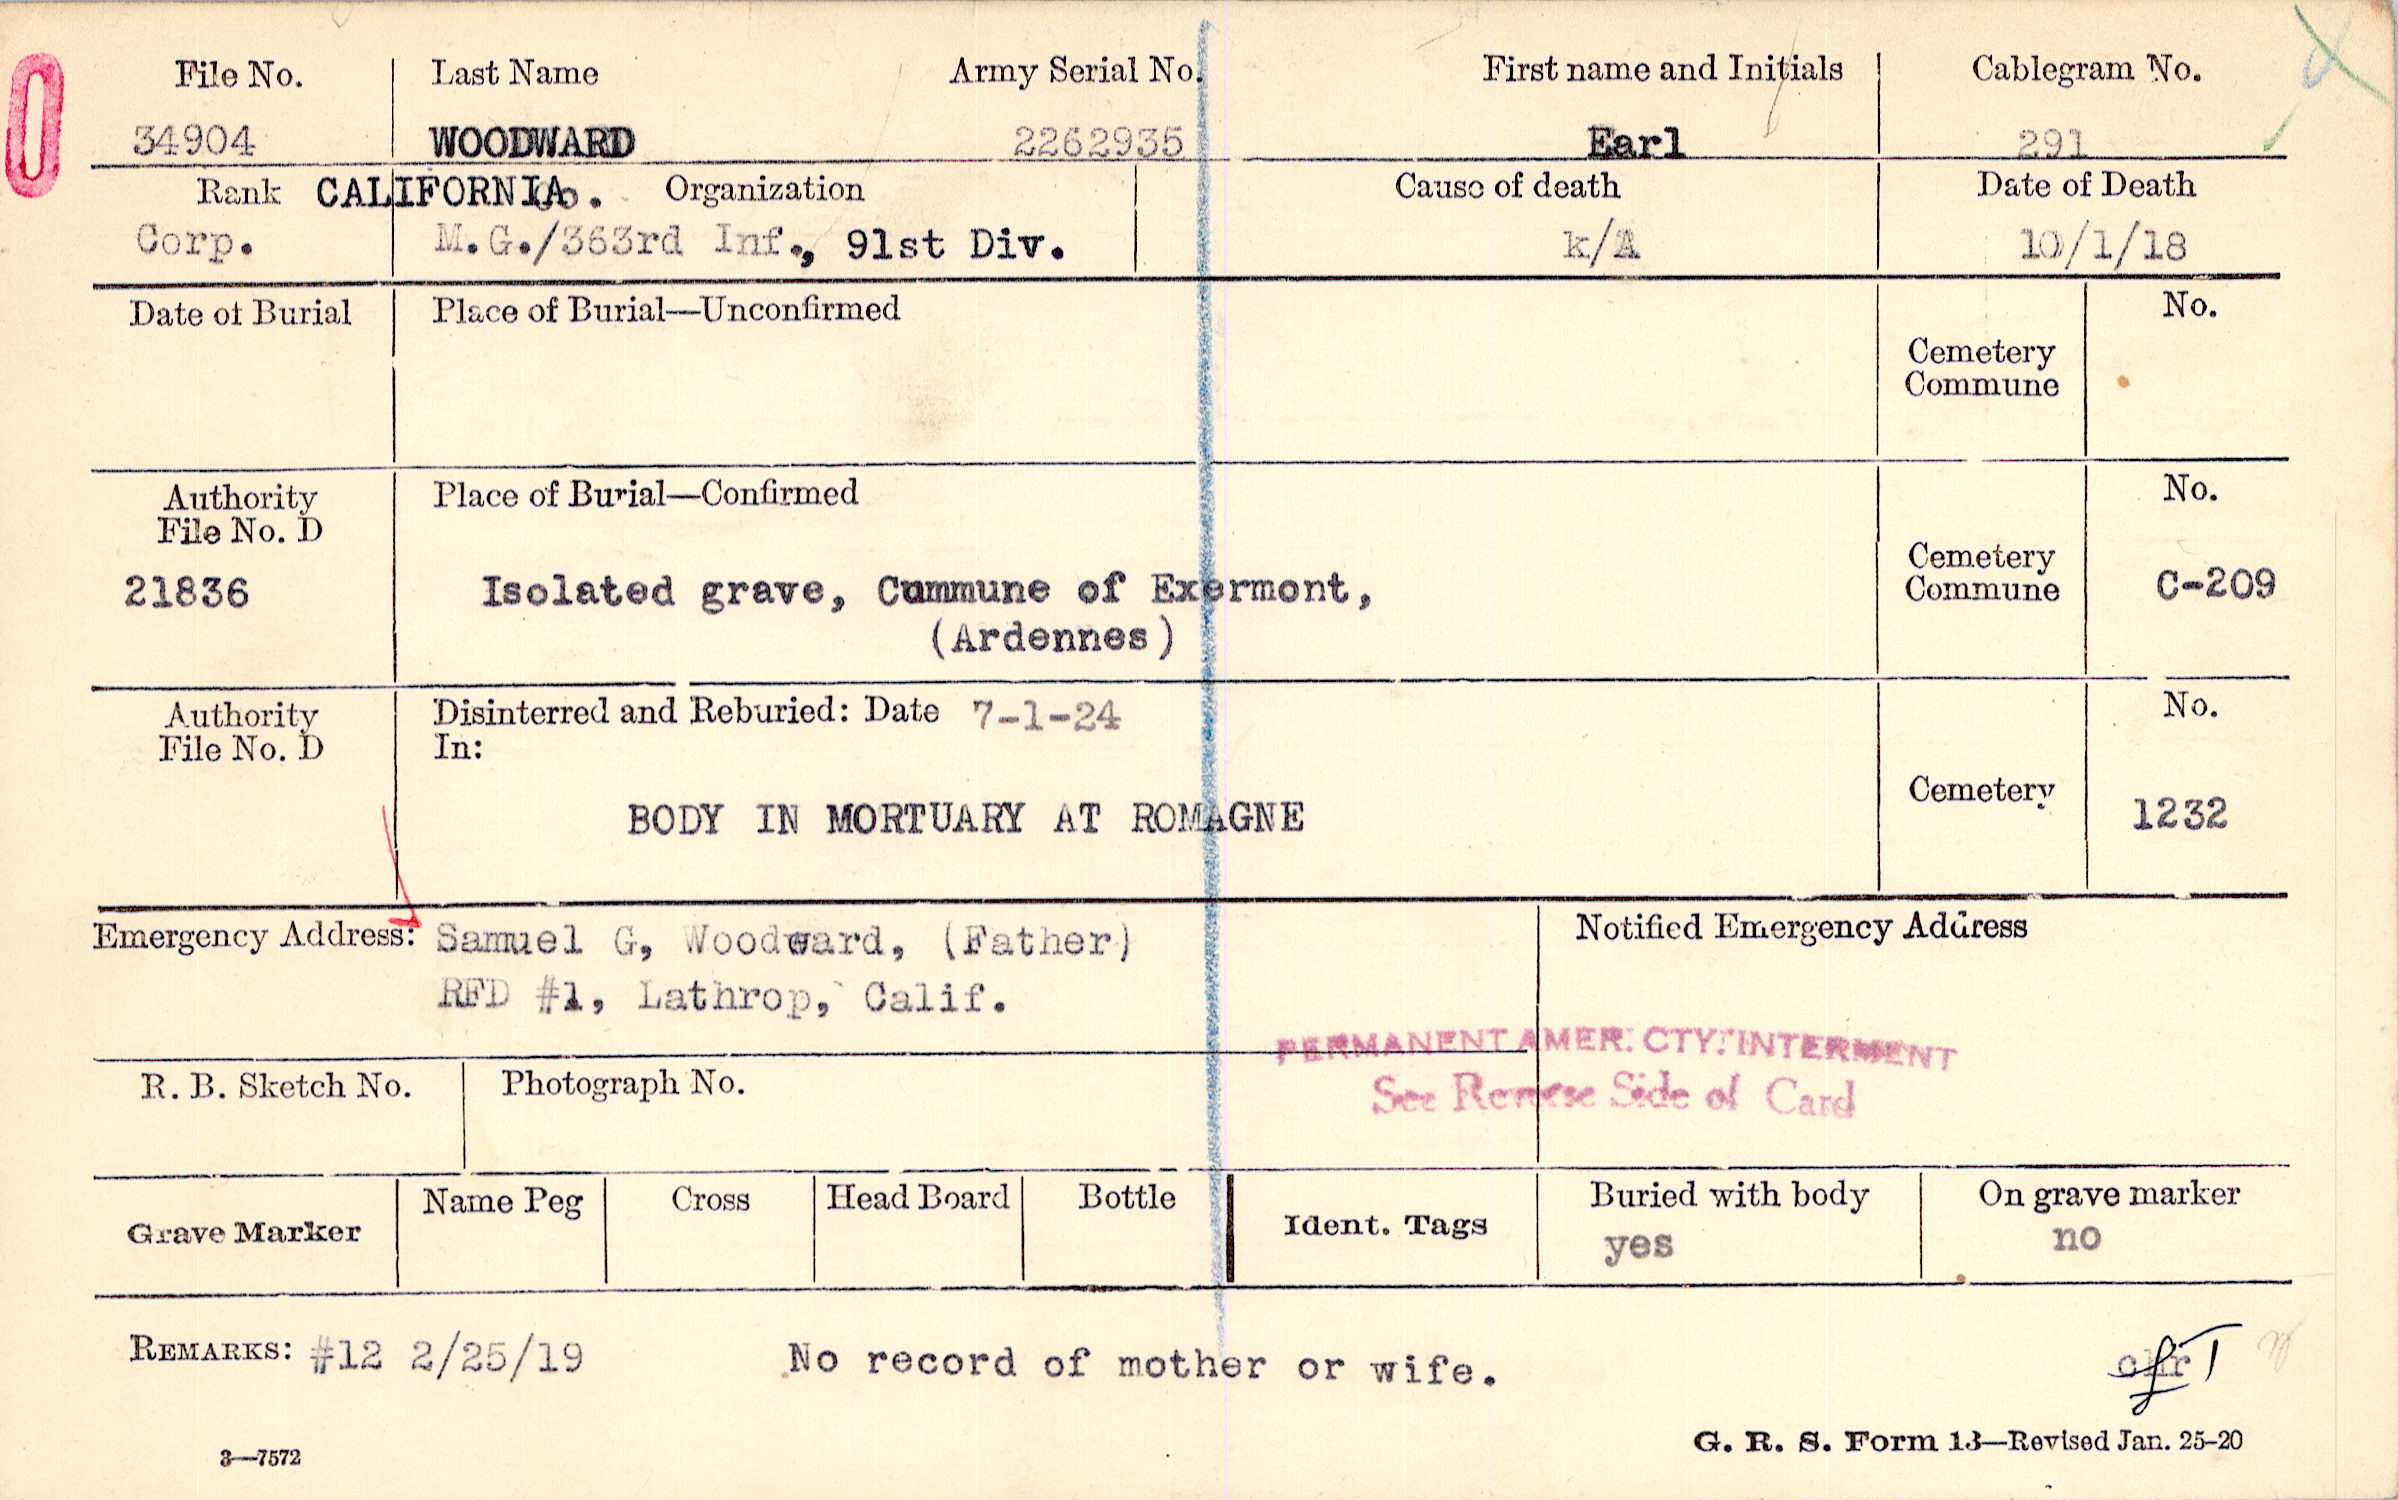 File No. Last Name Army Serial No. First name and Initials Cablegram No.
34904 WOODWARD 2262935 Earl 291
Rank CALIFORNIA. Organization Cause of death Date of Death
Corp. M.G./363rd Inf., 91st Div. k/A 10/1/18
Date of Burial Place of Burial—Unconfirmed No.
Cemetery
Commune
Authority Place of Burial—Confirmed No.
File No. D
Cemetery
21836 Isolated grave, Commune of Exermont, Commune C-209
(Ardennes)
Authority Disinterred and Reburied: Date 7-1-24 No.
File No. D In:
BODY IN MORTUARY AT ROMAGNE Cemetery 1232
Emergency Address: Samuel G, Woodward, (Father) Notified Emergency Address
RFD #1, Lathrop, Calif.
PERMANENT AMER. CTY. INTERMENT
R. B. Sketch No. Photograph No. See Reverse Side of Card
Name Peg Cross Head Board Bottle Buried with body On grave marker
Grave Marker Ident. Tags yes no
REMARKS: #12 2/25/19 No record of mother or wife. chr
3—7572 G. R. S. Form 13—Revised Jan. 25-20